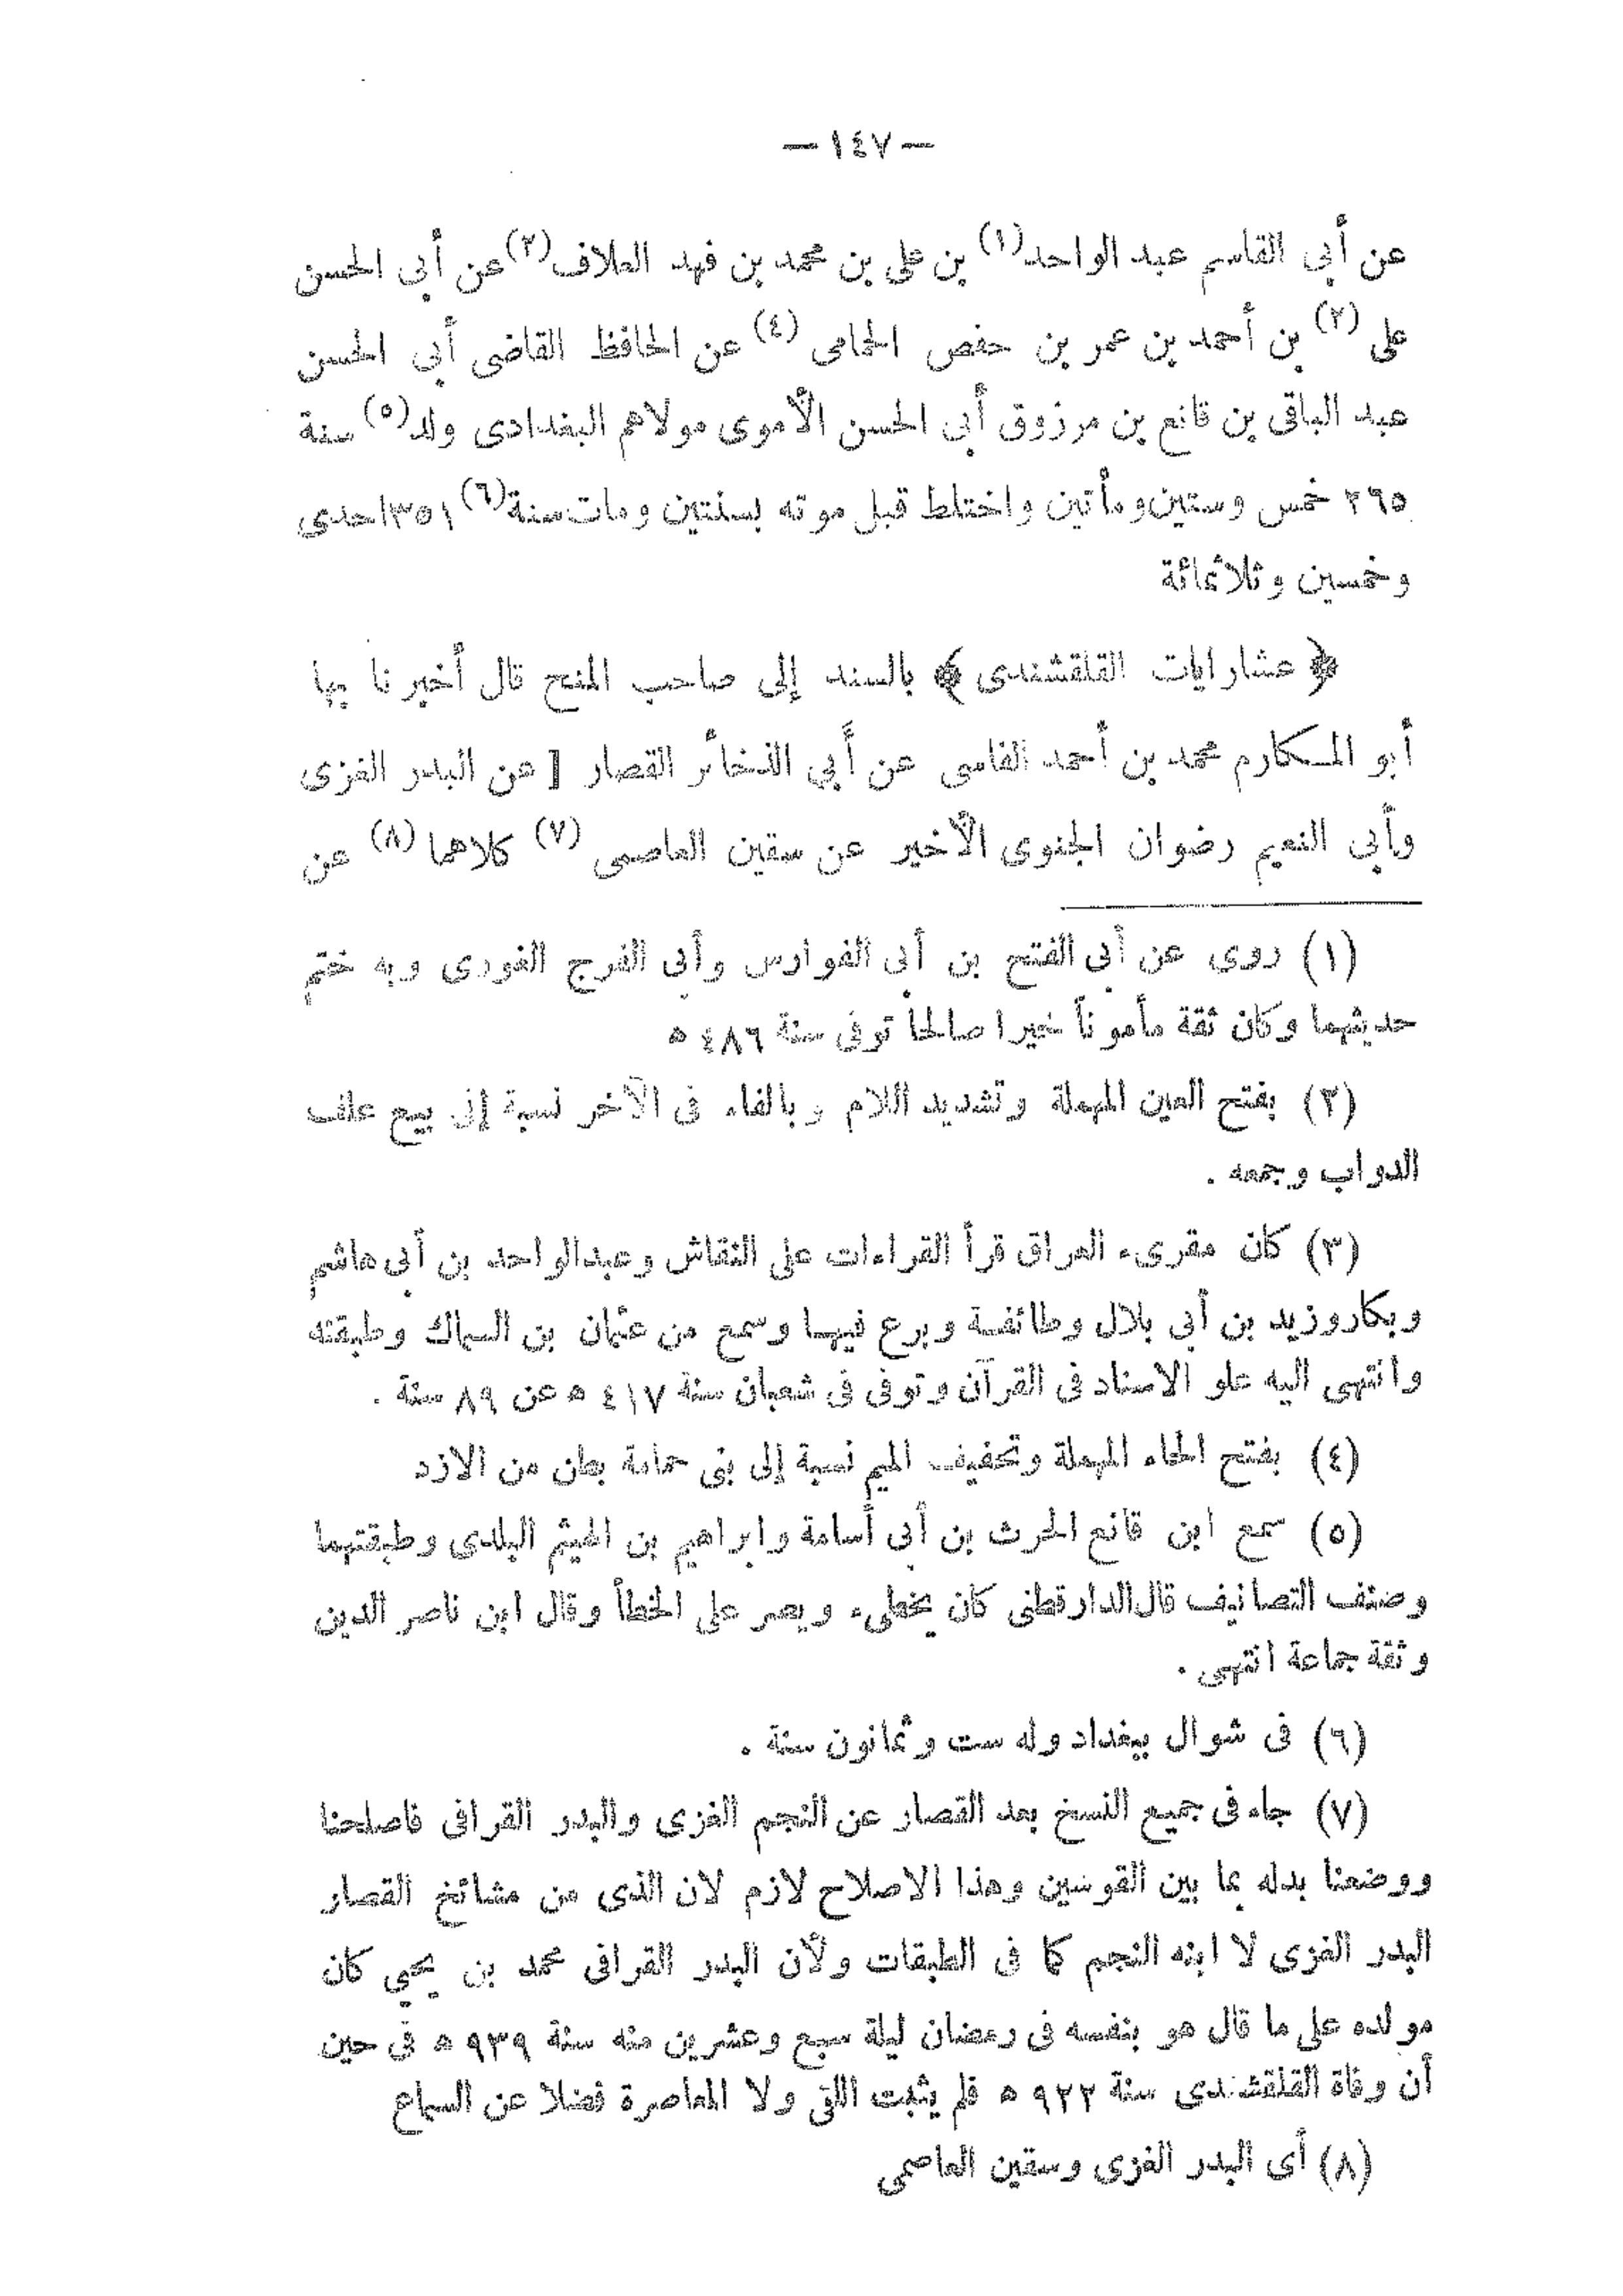 — ١٤٧ —
عن أبي القاسم عبد الواحد(١) بن على بن محمد بن فهد العلاف(٢) عن أبي الحسن
على (٣) بن أحمد بن عمر بن حفص الحمامى (٤) عن الحافظ القاضى أبي الحسن
عبد الباقى بن قانع بن مرزوق أبي الحسن الأموى مولاهم البغدادى ولد(٥) سنة
٢٦٥ خمس وستين ومأتين واختلط قبل موته بسنتين ومات سنة(٦) ٣٥١ احدى
وخمسين وثلاثمائة
﴿ عشارايات القلقشندى ﴾ بالسند إلى صاحب المنح قال أخبرنا بها
أبو المكارم محمد بن أحمد الفاسى عن أبي الذخائر القصار [ عن البدر الغزى
وأبي النعيم رضوان الجنوى الأخير عن سقين العاصمى (٧) كلاهما (٨) عن
(١) روى عن أبى الفتح بن أبى الفوارس وأبى الفرج الغورى وبه ختم
حديثهما وكان ثقة مأموناً خيرا صالحاً توفى سنة ٤٨٦ ه
(٢) بفتح العين المهملة وتشديد اللام وبالفاء فى الآخر نسبة إلى بيع علف
الدواب وجمعه .
(٣) كان مقرىء العراق قرأ القراءات على النقاش وعبدالواحد بن أبى هاشم
وبكار وزيد بن أبى بلال وطائفة وبرع فيها وسمع من عثمان بن السماك وطبقته
وانتهى اليه علو الاسناد فى القرآن وتوفى فى شعبان سنة ٤١٧ ه عن ٨٩ سنة .
(٤) بفتح الحاء المهملة وتخفيف الميم نسبة إلى بنى حمامة بطن من الازد
(٥) سمع ابن قانع الحرث بن أبى أسامة وابراهيم بن الهيثم البلدى وطبقتهما
وصنف التصانيف قال الدارقطنى كان يخطىء ويصر على الخطأ وقال ابن ناصر الدين
وثقة جماعة انتهى .
(٦) فى شوال ببغداد وله ست وثمانون سنة .
(٧) جاء فى جميع النسخ بعد القصار عن النجم الغزى والبدر القرافى فاصلحنا
ووضعنا بدله بما بين القوسين وهذا الاصلاح لازم لان الذى من مشائخ القصار
البدر الغزى لا ابنه النجم كما فى الطبقات ولأن البدر القرافى محمد بن يحيى كان
مولده على ما قال هو بنفسه فى رمضان ليلة سبع وعشرين منه سنة ٩٣٩ ه فى حين
أن وفاة القلقشندى سنة ٩٢٢ ه فلم يثبت اللقى ولا المعاصرة فضلا عن السماع
(٨) أى البدر الغزى وسقين العاصمى